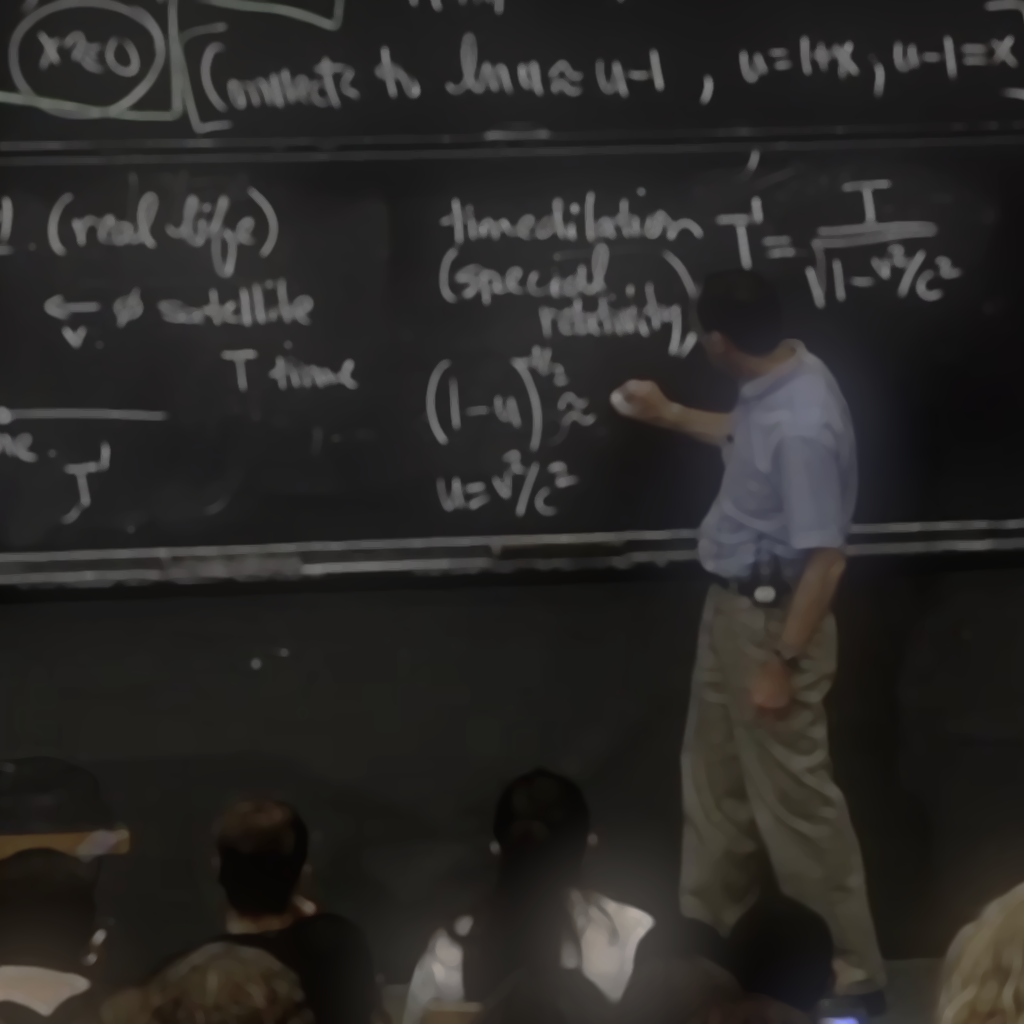 x≈0
(Connects to ln u ≈ u-1 , u=1+x; u-1=x
(real life)
← ⌀ satellite
v
T time
T'
time dilation T' = T/√(1-v²/c²)
(special
relativity)
(1-u)^(-1/2) ≈
u=v²/c²